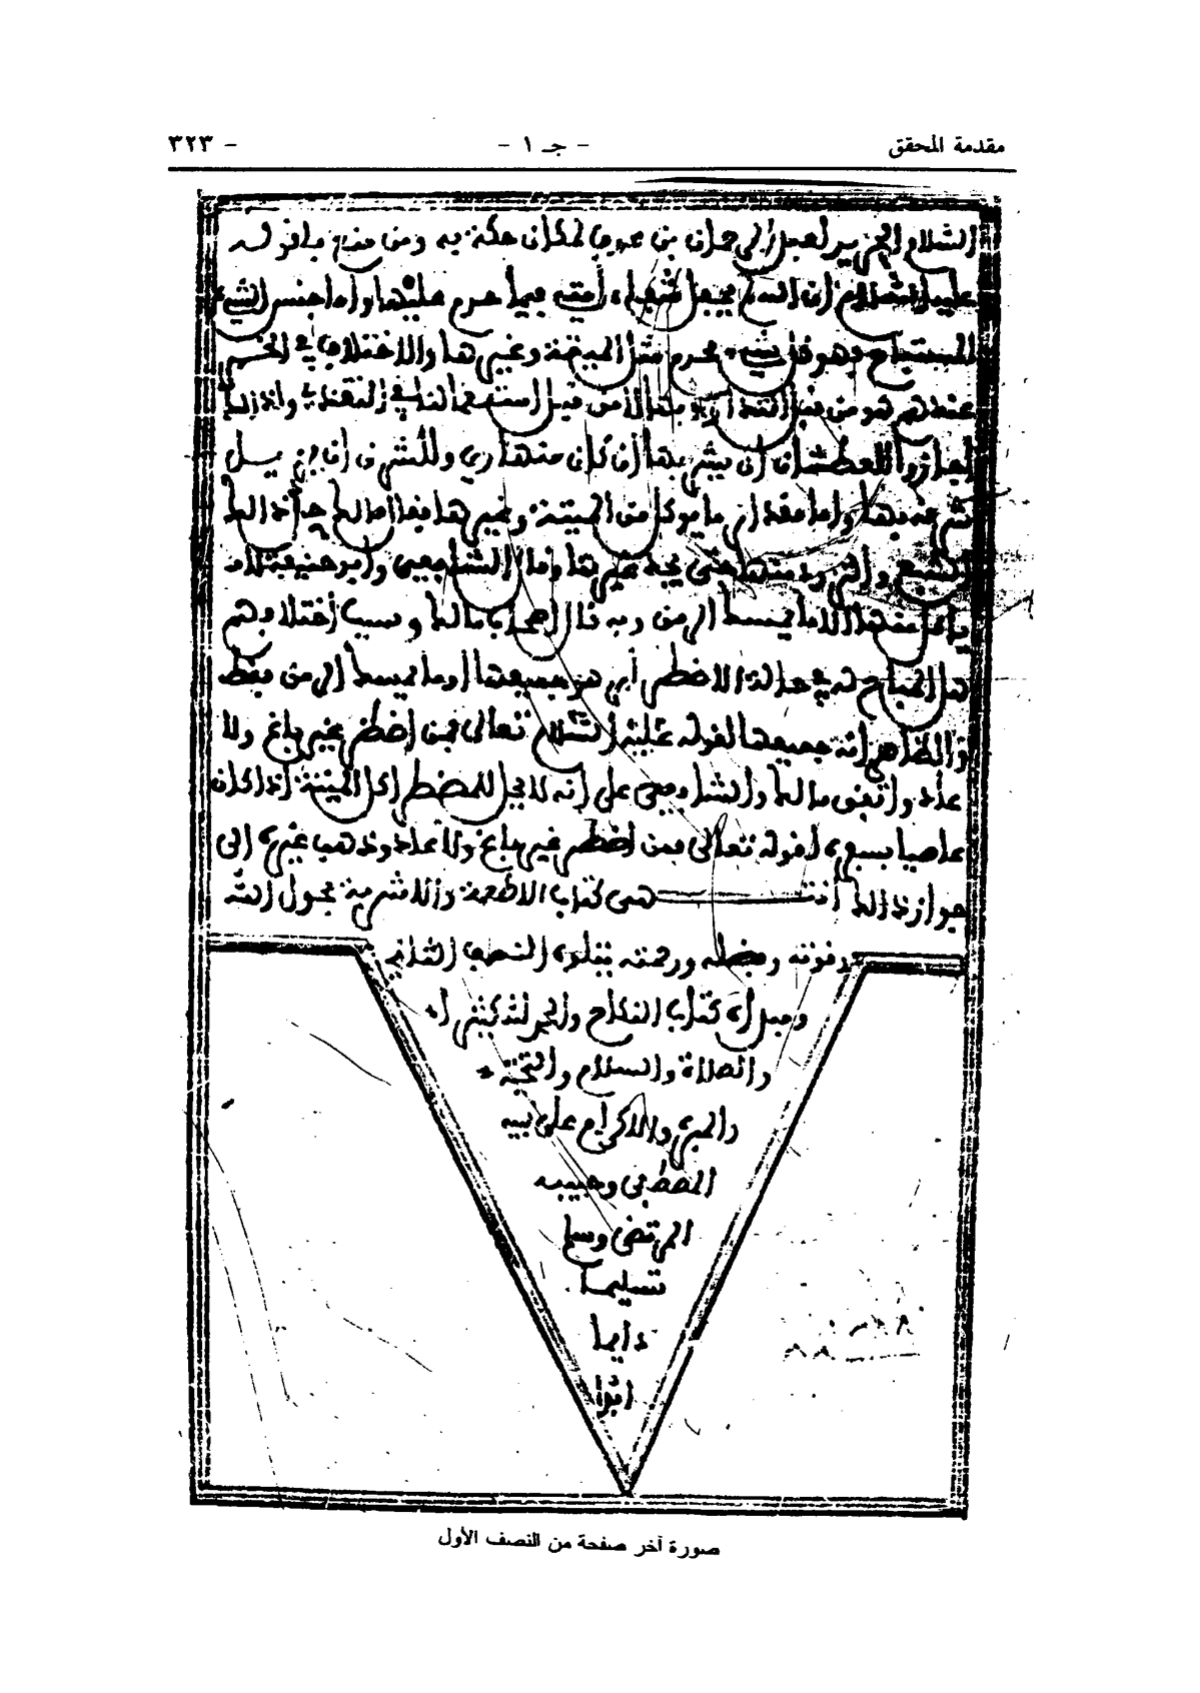 مقدمة المحقق - جـ ١ - - ٣٢٣
السلام الحرير لعبد الرحمان بن عوف لمكان حكة به ومن منع فلقوله
عليه السلام ان الله لم يجعل شفاء أمتي فيما حرم عليها وأما جنس الشيء
المستباح فهو كل شيء محرم مثل الميتة وغيرها والاختلاف في الخمر
عندهم هو من قبل التداوي بها لا من قبل استعمالها في التغذي ولذلك
اجازوا للعطشان أن يشربها أن كان منها ري وللشرق أن يزيل
شرقه بها وأما مقدار ما يوكل من الميتة وغيرها فإن مالكا حد ذلك
الشبع والتزود منها حتى يجد غيرها وقال الشافعي وابو حنيفة لا
ياكل منها الا ما يمسك الرمق وبه قال اصحاب مالك وسبب اختلافهم
هل المباح له في حالة الاضطرار هو جميعها أو ما يمسك الرمق فقط
والظاهر انه جميعها لقوله تعالى فمن اضطر غير باغ ولا
عاد واتفق مالك والشافعي على انه لا يحل للمضطر اكل الميتة اذا كان
عاصيا بسفره لقوله تعالى فمن اضطر غير باغ ولا عاد وذهب غيره إلى
جواز ذلك انتهى كتاب الاطعمة والاشربة بحول الله
وقوته وفضله ورحمته يتلوه النصف الثاني
وسلم كتاب النكاح والحمد لله كثيرا
والصلاة والسلام والتحية
والبر والاكرام على نبيه
المصطفى وحبيبه
المرتضى وسلم
تسليما
دايما
ابدا
صورة آخر صفحة من النصف الأول